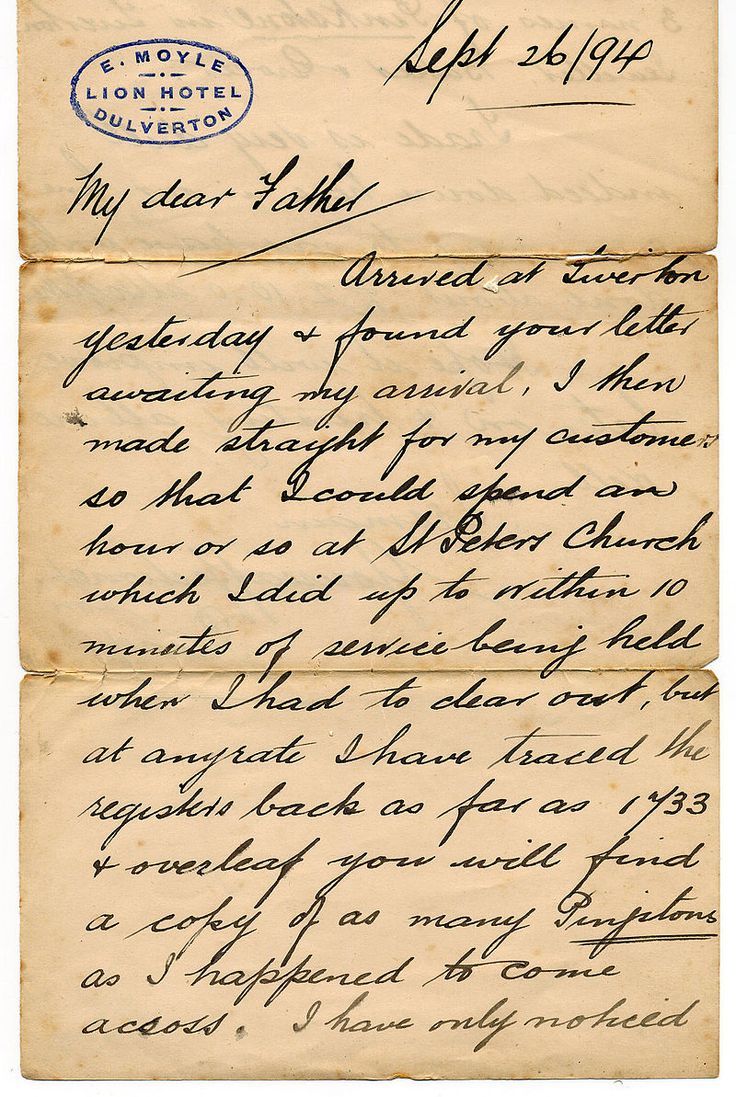 E. MOYLE
LION HOTEL
DULVERTON
Sept 26/94
My dear Father
Arrived at Tiverton
yesterday & found your letter
awaiting my arrival, I then
made straight for my customers
so that I could spend an
hour or so at St Peters Church
which I did up to within 10
minutes of service being held
when I had to clear out, but
at anyrate I have traced the
registers back as far as 1733
& overleaf you will find
a copy of as many Pinkstons
as I happened to come
across. I have only noticed